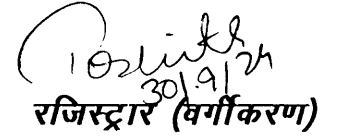 30/9/24
रजिस्ट्रार (वर्गीकरण)